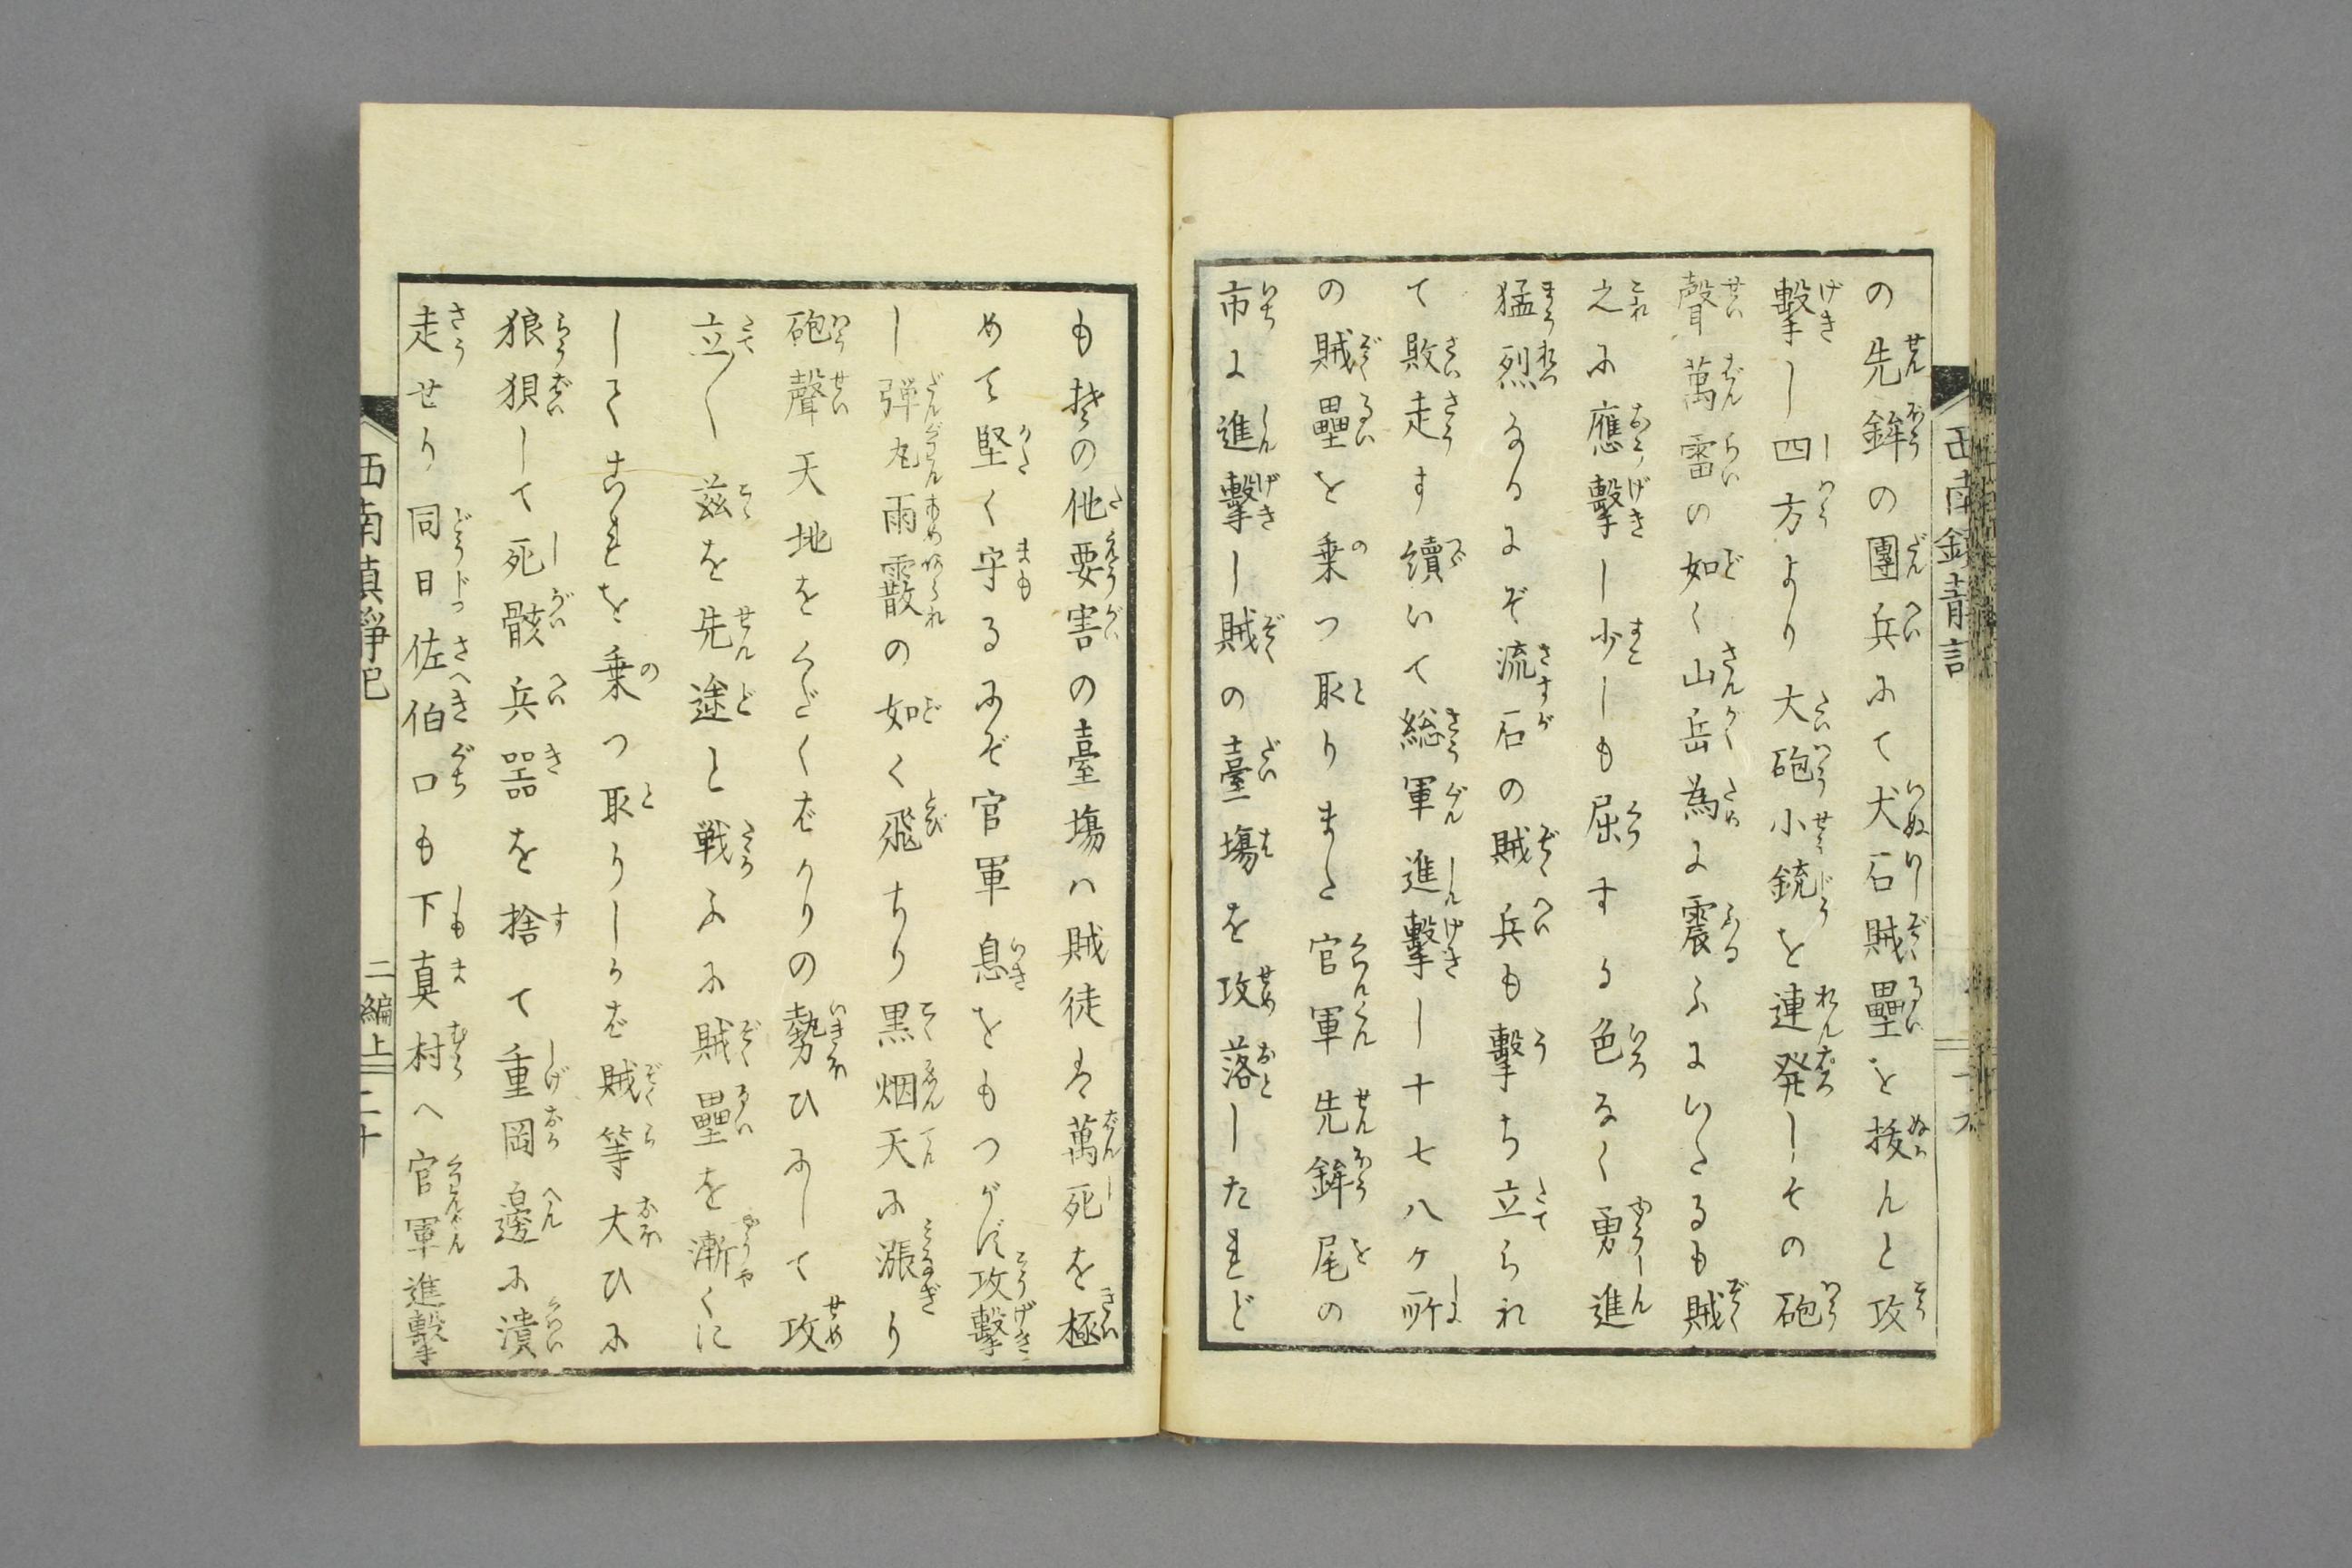 の先鉾の團兵にて犬石賊壘を抜んと攻
擊し四方より大砲小銃を連発しその砲
聲萬雷の如く山岳為に震ふにいたるも賊
之に應擊し少しも屈する色なく勇進
猛烈なるにぞ流石の賊兵も擊ち立られ
て敗走す續いて総軍進擊し十七八ケ所
の賊壘を乗つ取りまた官軍先鉾尾の
市に進擊し賊の臺塲を攻落したれど
も其の他要害の臺塲ハ賊徒は萬死を極
めて堅く守るにぞ官軍息をもつがず攻擊
し弾丸雨霰の如く飛ちり黒烟天に漲り
砲聲天地をくだくばかりの勢ひにして攻
立〱茲を先途と戦ふに賊壘を漸くに
してこれを乗つ取りしかば賊等大ひに
狼狽して死骸兵器を捨て重岡邊に潰
走せり同日佐伯口も下真村へ官軍進擊
西南鎮靜記
二編上
二十